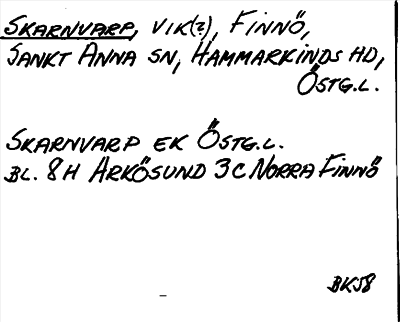 SKARNVARP, VIK(?), FINNÖ,
SANKT ANNA SN, HAMMARKINDS HD,
ÖSTG.L.
SKARNVARP EK ÖSTG.L.
BL. 8H ARKÖSUND 3C NORRA FINNÖ
BK58